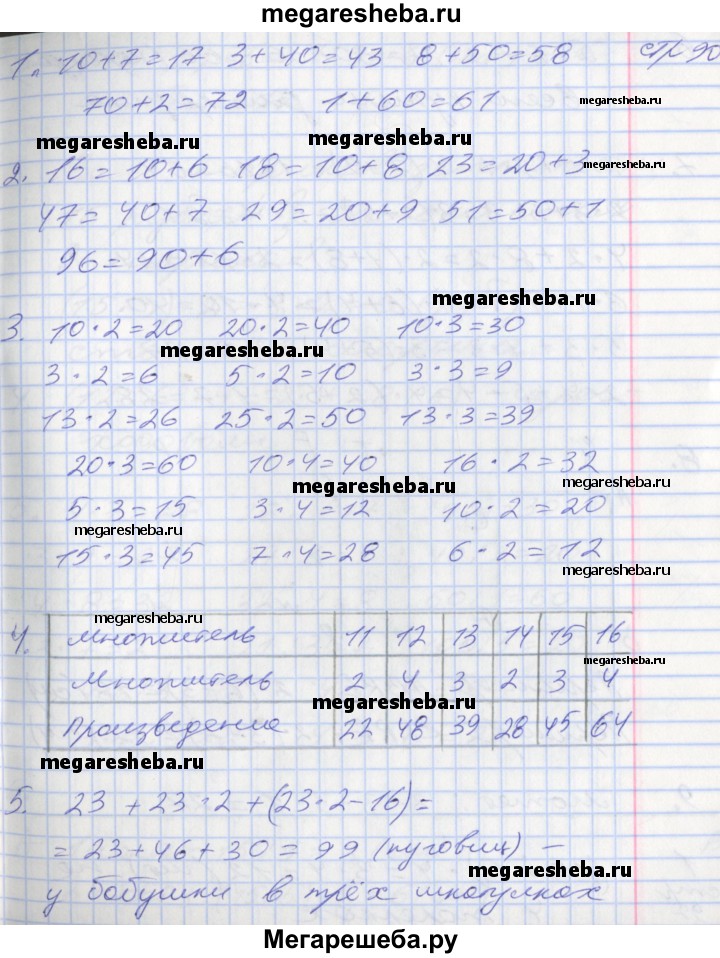 megaresheba.ru
1. 10+7=17 3+40=43 8+50=58 стр 90
megaresheba.ru
70+2=72 1+60=61
megaresheba.ru megaresheba.ru
2. 16=10+6 18=10+8 23=20+3
megaresheba.ru
47=40+7 29=20+9 51=50+1
96=90+6
megaresheba.ru
3. 10·2=20 20·2=40 10·3=30
megaresheba.ru
3·2=6 5·2=10 3·3=9
13·2=26 25·2=50 13·3=39
20·3=60 10·4=40 16·2=32
megaresheba.ru
5·3=15 3·4=12 10·2=20
megaresheba.ru megaresheba.ru
15·3=45 7·4=28 6·2=12
megaresheba.ru
megaresheba.ru
4. Множитель 11 12 13 14 15 16
megaresheba.ru
Множитель 2 4 3 2 3 4
megaresheba.ru
Произведение 22 48 39 28 45 64
megaresheba.ru
5. 23+23·2+(23·2-16)=
=23+46+30=99 (пуговиц) -
megaresheba.ru
у бабушки в трёх шкатулках
Мегарешеба.ру